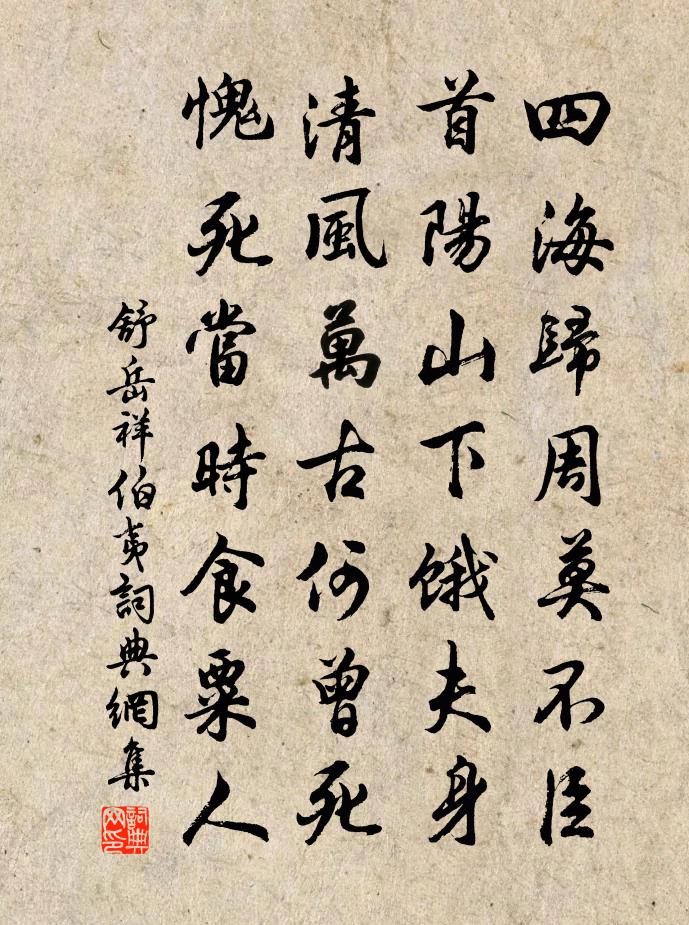 四海歸周莫不臣
首陽山下餓夫身
清風萬古何曾死
愧死當時食粟人
舒岳祥伯夷詞典網集
詞典网印